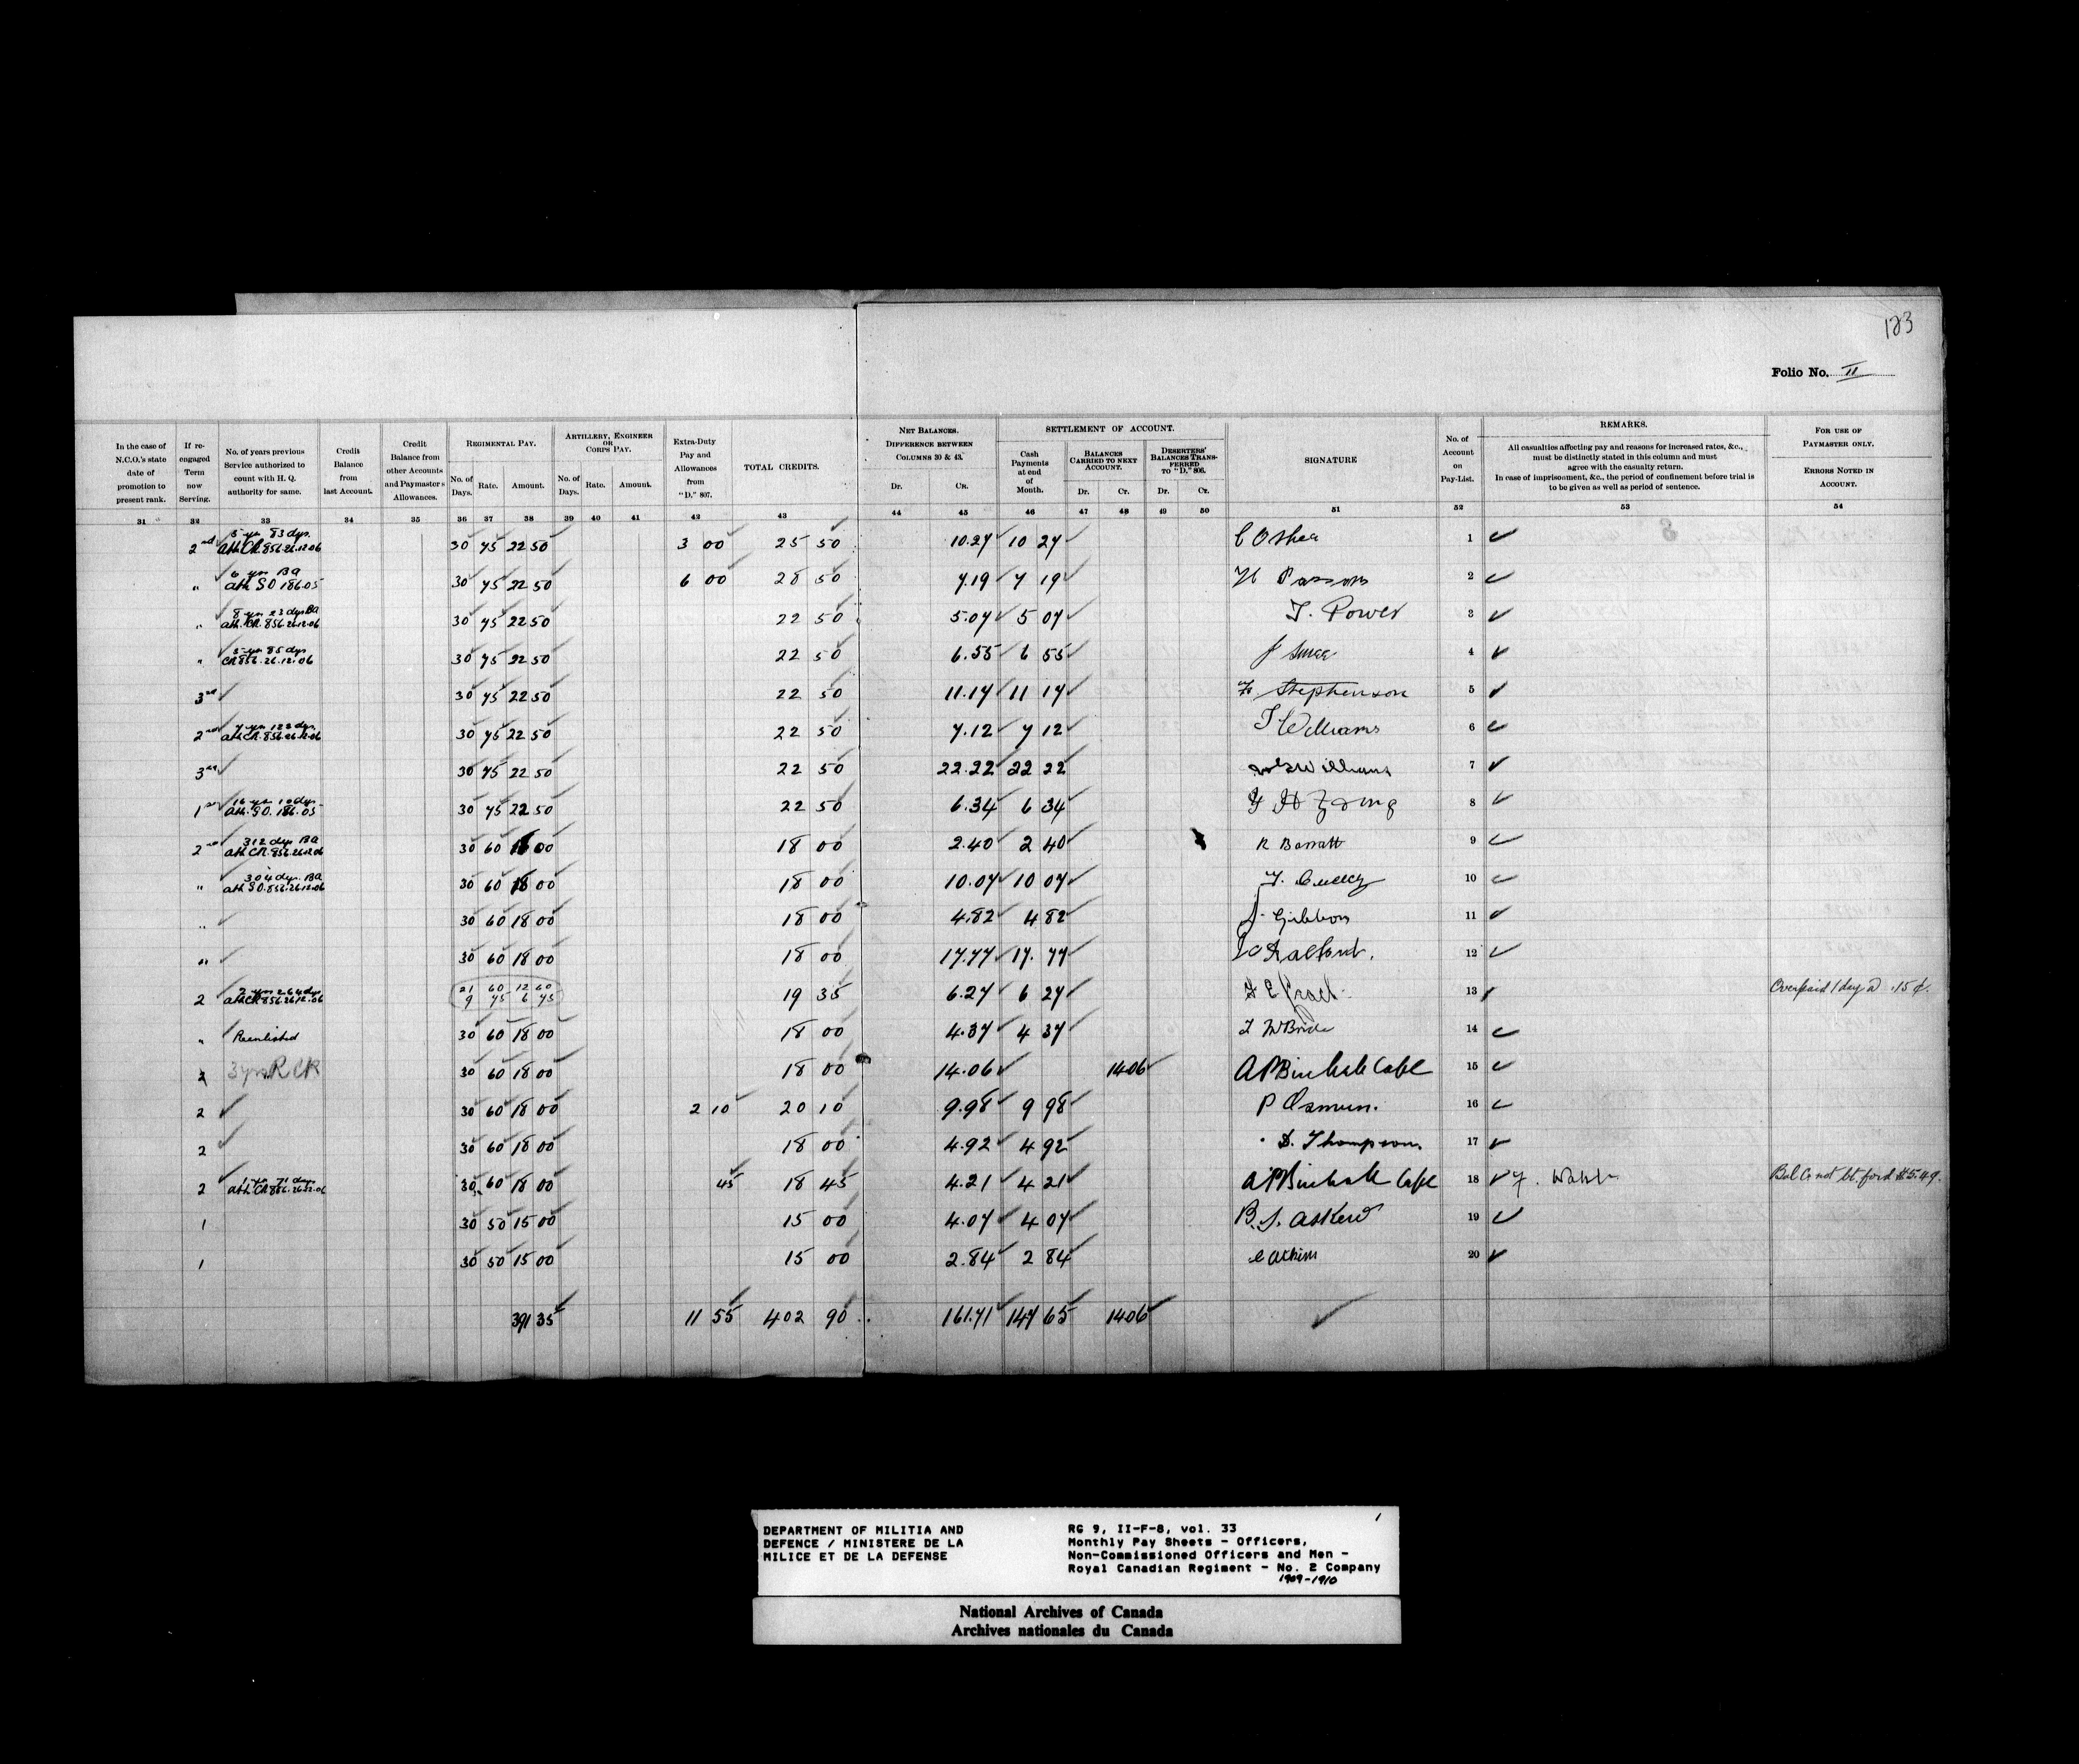 123
Folio No. II
In the case of N.C.O.'s state date of promotion to present rank.
If re-engaged Term now Serving.
No. of years previous Service authorized to count with H. Q. authority for same.
Credit Balance from last Account.
Credit Balance from other Accounts and Paymaster's Allowances.
REGIMENTAL PAY.
No. of Days. Rate. Amount.
ARTILLERY, ENGINEER OR CORPS PAY.
No. of Days. Rate. Amount.
Extra-Duty Pay and Allowances from "D." 807.
TOTAL CREDITS.
NET BALANCES. DIFFERENCE BETWEEN COLUMNS 30 & 43.
Dr. Cr.
SETTLEMENT OF ACCOUNT.
Cash Payments at end of Month.
BALANCES CARRIED TO NEXT ACCOUNT.
Dr. Cr.
DESERTERS' BALANCES TRANSFERRED TO "D." 806.
Dr. Cr.
SIGNATURE
No. of Account on Pay-List.
REMARKS.
All casualties affecting pay and reasons for increased rates, &c., must be distinctly stated in this column and must agree with the casualty return.
In case of imprisonment, &c., the period of confinement before trial is to be given as well as period of sentence.
FOR USE OF PAYMASTER ONLY.
ERRORS NOTED IN ACCOUNT.
31 32 33 34 35 36 37 38 39 40 41 42 43 44 45 46 47 48 49 50 51 52 53 54
2nd 5 yrs 83 dys. auth CR.856.26.12.06 30 75 22 50 3 00 25 50 10.27 10 27 C OShea 1
" 6 yrs BA auth SO 186.05 30 75 22 50 6 00 28 50 7.19 7 19 H Parsons 2
" 8 yrs 23 dys BA auth. CR.856.26.12.06 30 75 22 50 22 50 5.07 5 07 T. Power 3
" 5 yrs 85 dys CR 856.26.12.06 30 75 22 50 22 50 6.55 6 55 4
3rd 30 75 22 50 22 50 11.17 11 17 Stephenson 5
2nd 7 yrs 122 dys. auth CR.856.26.12.06 30 75 22 50 22 50 7.12 7 12 T Williams 6
3rd 30 75 22 50 22 50 22.22 22 22 Williams 7
1st 16 yrs 10 dys. auth. SO. 186.05 30 75 22 50 22 50 6.34 6 34 8
2nd 312 dys BA auth CR.856.26.12.06 30 60 18 00 18 00 2.40 2 40 R Barratt 9
" 304 dys. BA auth SO.856.26.12.06 30 60 18 00 18 00 10.07 10 07 10
" 30 60 18 00 18 00 4.82 4 82 J. Gibbons 11
" 30 60 18 00 18 00 17.77 17. 77 12
2 2 yrs 264 dys auth CR 856.26.12.06 21 60 12 60 9 75 6 75 19 35 6.27 6 27 13 Overpaid 1 day @ .15 ¢.
" Reenlisted 30 60 18 00 18 00 4.37 4 37 McBride 14
2 3 yrs RCR 30 60 18 00 18 00 14.06 14 06 A P Birchall Capt 15
2 30 60 18 00 2 10 20 10 9.98 9 98 P Osmun. 16
2 30 60 18 00 18 00 4.92 4 92 D. Thompson 17
2 1 yr 71 days auth. CR 856.26.12.06 30 60 18 00 45 18 45 4.21 4 21 A P Birchall Capt 18 Bal Cr not bt. ford $5.49.
1 30 50 15 00 15 00 4.07 4 07 B. S. Askew 19
1 30 50 15 00 15 00 2.84 2 84 20
391 35 11 55 402 90 161.71 147 65 14 06
DEPARTMENT OF MILITIA AND
DEFENCE / MINISTERE DE LA
MILICE ET DE LA DEFENSE
RG 9, II-F-8, vol. 33
Monthly Pay Sheets - Officers,
Non-Commissioned Officers and Men -
Royal Canadian Regiment - No. 2 Company
1909-1910
1
National Archives of Canada
Archives nationales du Canada